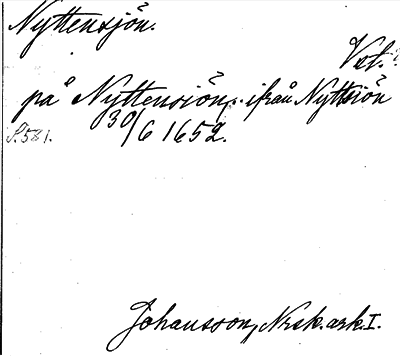 Nyttensjön.
Vst.
på Nyttensiön, ifrån Nyttsiön
S. 581. 30/6 1652.
Johansson, Nrsk. ark. I.